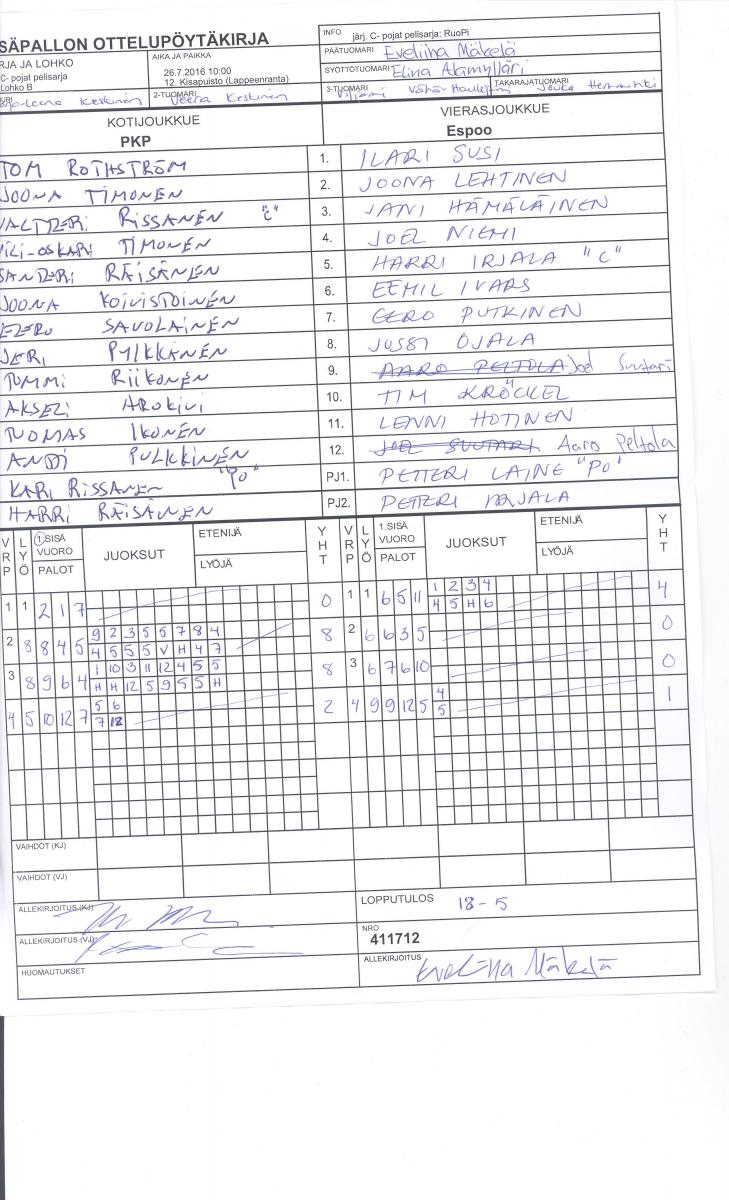 SÄPALLON OTTELUPÖYTÄKIRJA
INFO järj. C- pojat pelisarja: RuoPi
RJA JA LOHKO
C- pojat pelisarja
Lohko B
AIKA JA PAIKKA
26.7.2016 10:00
12. Kisapuisto (Lappeenranta)
PÄÄTUOMARI Eveliina Mäkelä
SYÖTTÖTUOMARI Elina Alamylläri
2-TUOMARI Veera Keskinen
3-TUOMARI
TAKARAJATUOMARI
KOTIJOUKKUE
PKP
VIERASJOUKKUE
Espoo
TOM ROTHSTRÖM 1. ILARI SUSI
JOONA TIMONEN 2. JOONA LEHTINEN
VALTTERI RISSANEN "C" 3. JANI HÄMÄLÄINEN
ILI-OSKARI TIMONEN 4. JOEL NIEMI
SANTERI RÄISÄNEN 5. HARRI IRJALA "C"
JOONA KOIVISTOINEN 6. EEMIL IVARS
EERO SAVOLAINEN 7. EERO PUTKINEN
JERI PYLKKÄNEN 8. JUSSI OJALA
TOMMI RIIKONEN 9. AARO PELTOLA Joel Suutari
AKSELI AROKIVI 10. TIM KRÖCKEL
TUOMAS IKONEN 11. LENNI HOTINEN
ANTTI PULKKINEN 12. JOEL SUUTARI Aaro Peltola
KARI RISSANEN "PO" PJ1. PETTERI LAINE "PO"
HARRI RÄISÄNEN PJ2. PETTERI IRJALA
VRP LYÖ 1.SISÄ VUORO PALOT JUOKSUT ETENIJÄ LYÖJÄ YHT VRP LYÖ 1.SISÄ VUORO PALOT JUOKSUT ETENIJÄ LYÖJÄ YHT
1 1 2 1 7 0 1 1 6 5 11 1 2 3 4 4
4 5 H 6
2 8 8 4 5 9 2 3 5 6 7 8 4 8 2 6 6 3 5 0
4 5 5 5 V H 4 7
3 8 9 6 4 1 10 3 11 12 4 5 5 8 3 6 7 6 10 0
H H 12 5 9 5 5 H
4 5 10 12 7 5 6 2 4 9 9 12 5 4 1
7 12 5
VAIHDOT (KJ)
VAIHDOT (VJ)
ALLEKIRJOITUS (KJ)
LOPPUTULOS 18-5
ALLEKIRJOITUS (VJ)
NRO
411712
HUOMAUTUKSET
ALLEKIRJOITUS Eveliina Mäkelä